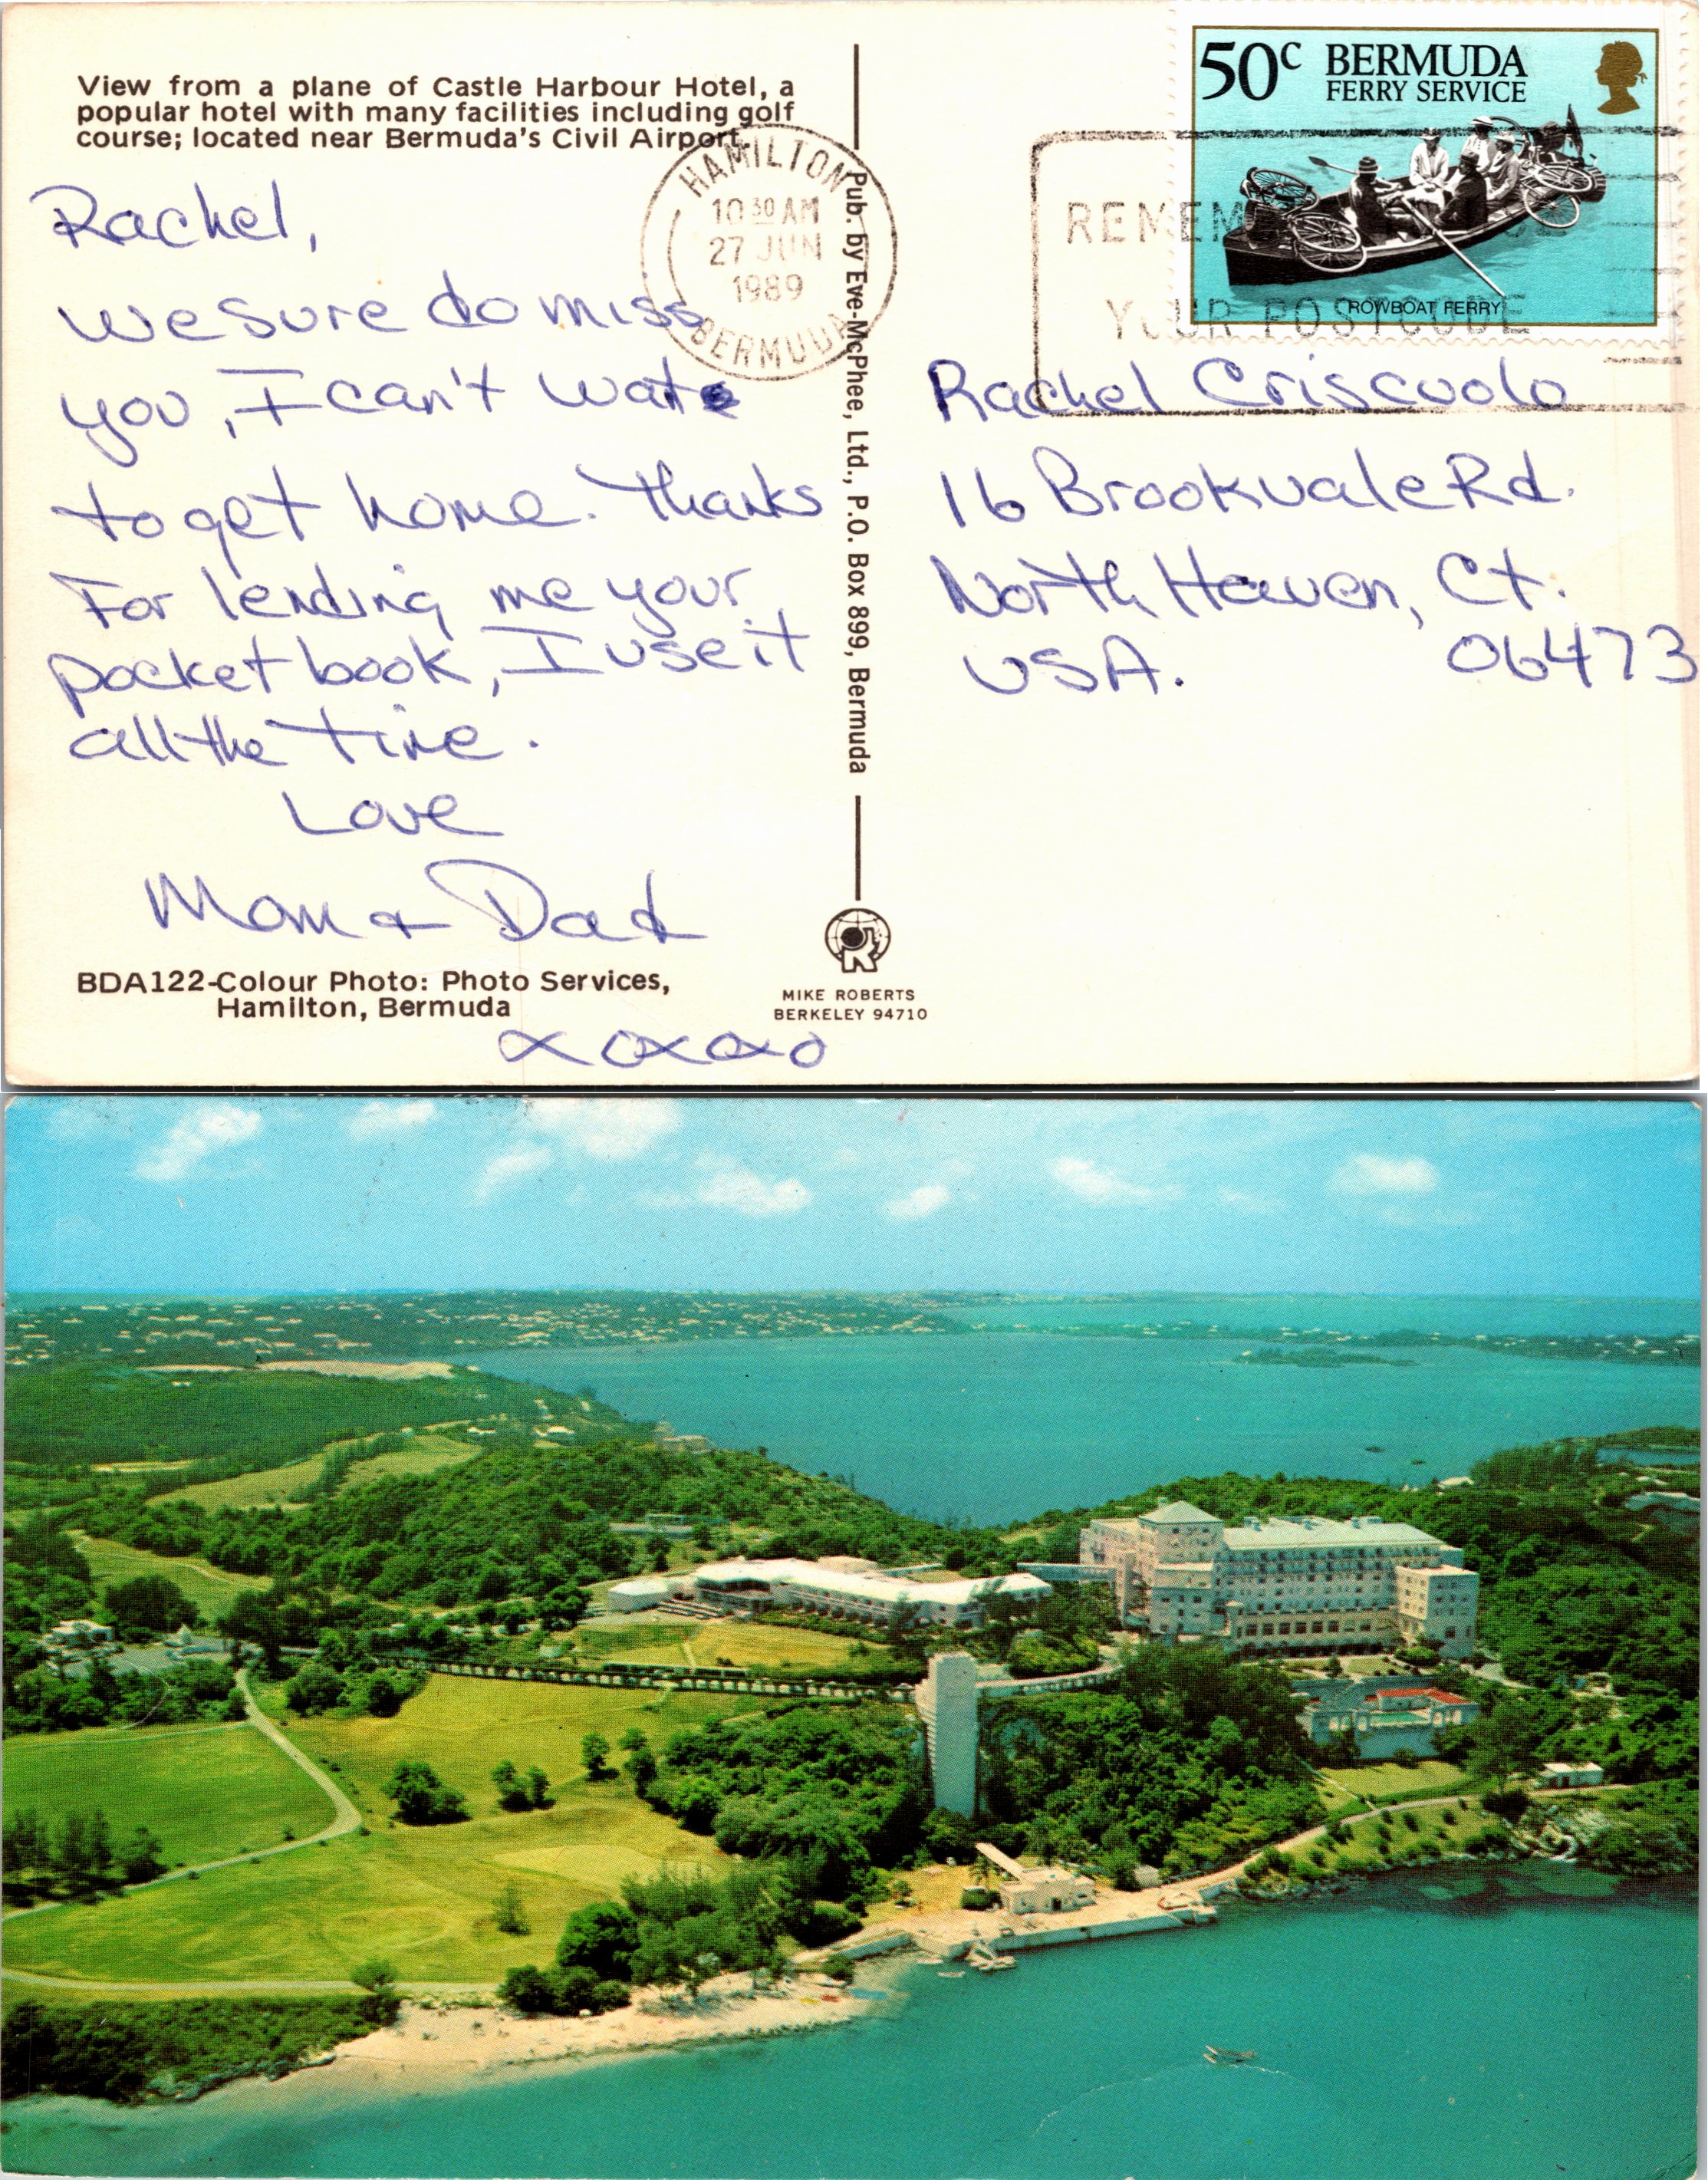 View from a plane of Castle Harbour Hotel, a
popular hotel with many facilities including golf
course; located near Bermuda's Civil Airport.
Rachel,
we sure do miss
you, I can't wate
to get home. Thanks
For lending me your
pocket book, I use it
all the time.
Love
Mom & Dad
BDA122-Colour Photo: Photo Services,
Hamilton, Bermuda
xoxoxo
HAMILTON
10 30 AM
27 JUN
1989
BERMUDA
Pub. by Eve-McPhee, Ltd., P.O. Box 899, Bermuda
MIKE ROBERTS
BERKELEY 94710
50c BERMUDA
FERRY SERVICE
ROWBOAT FERRY
YOUR POSTCODE
Rachel Criscuolo
16 Brookvale Rd.
North Haven, Ct.
USA. 06473